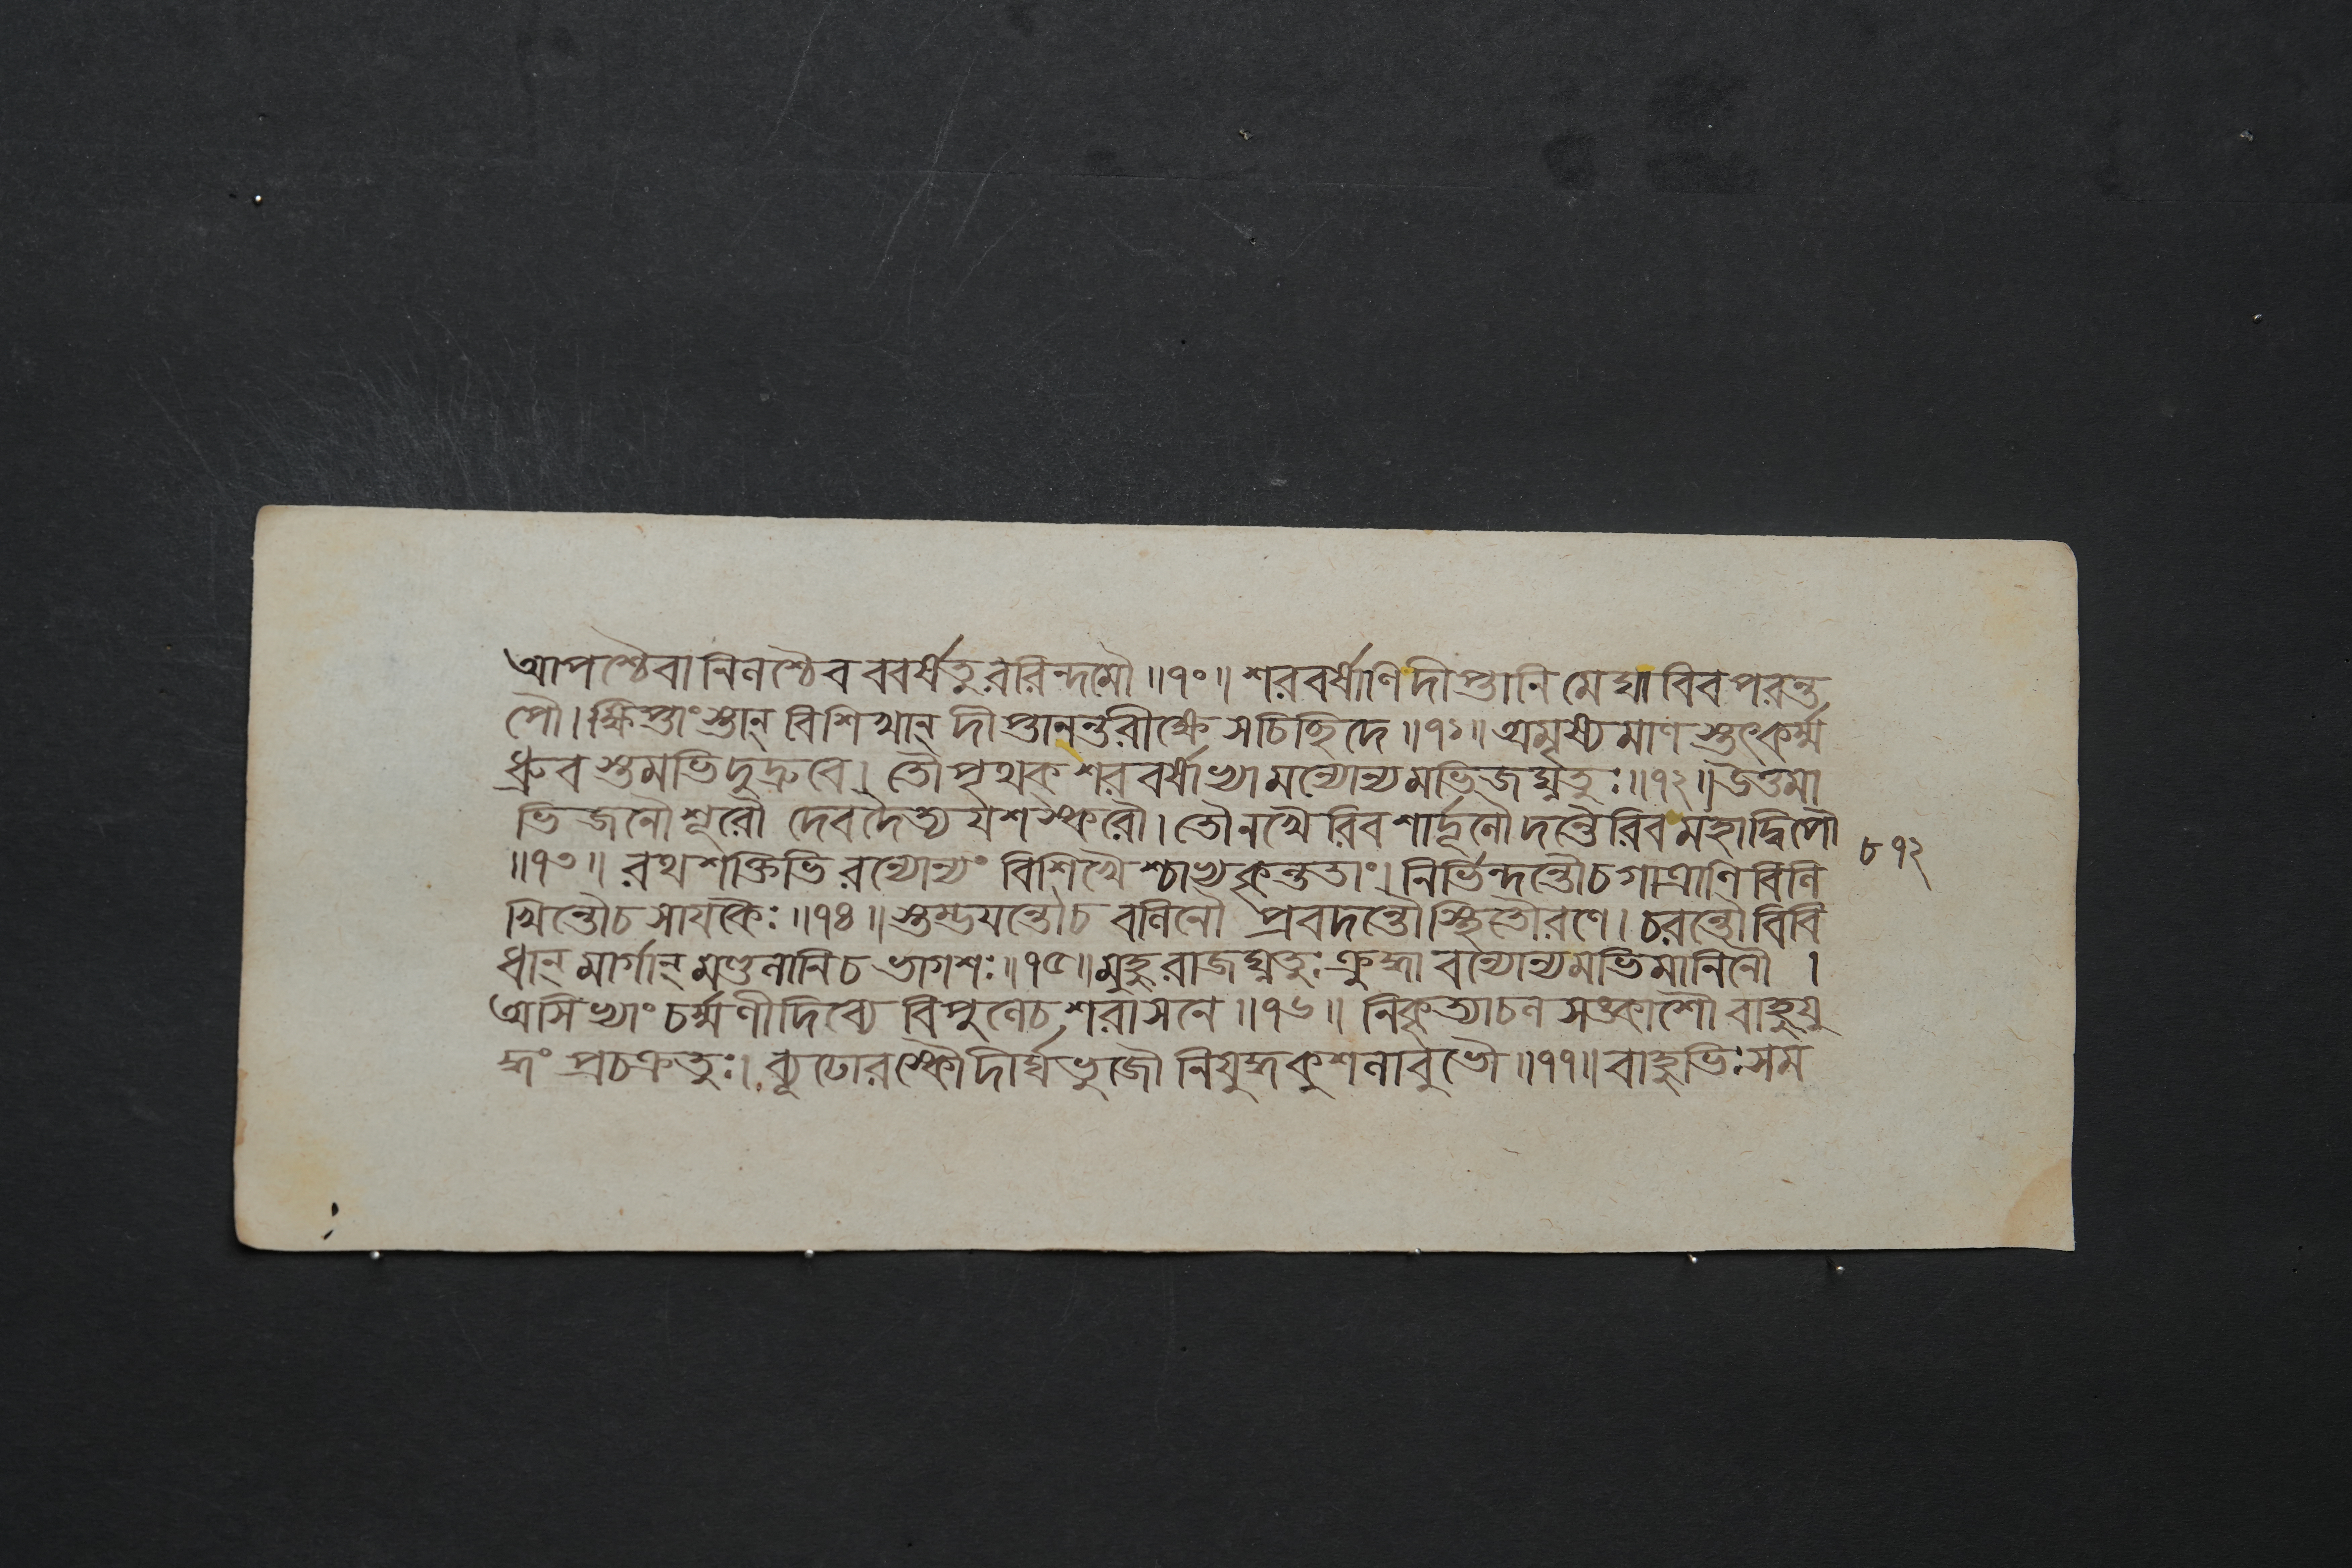 আপশ্চৈবানিনশ্চৈব ববর্ষতুররিন্দমৌ ॥ ৭০ ॥ শরবর্ষাণিদীপ্তানি মেঘাবিবপরন্ত
পৌ । ক্ষিপ্তাংস্তান্ বিশিখান্ দীপ্তানন্তরীক্ষে সচিচ্ছিদে ॥ ৭১ ॥ অমৃষ্যমাণস্তৎকর্ম্ম
ধ্রুবস্তমভিদুদ্রুবে । তৌপৃথক্ শরবর্ষাভ্যামন্যোন্যমভিজঘ্নতুঃ ॥ ৭২ ॥ উত্তমা
ভিজনৌশূরৌ দেবদৈত্যযশস্করৌ । তৌনখৈরিবশার্দূলৌদন্তৈরিবমহাদ্বিপৌ
॥ ৭৩ ॥ রথশক্তিভিরন্যোন্যং বিশিখৈশ্চাভ্যকৃন্ততাং । নির্ভিন্দন্তৌচগাত্রাণিবিনি
খিন্তৌচসাযকৈঃ ॥ ৭৪ ॥ স্তম্ভযন্তৌচ বলিনৌ প্রবদন্তৌস্থিতৌরণে । চরন্তৌবিবি
ধান্ মার্গান্ মণ্ডলানিচ ভাগশঃ ॥ ৭৫ ॥ মুহুরাজঘ্নতুঃক্রুদ্ধাবন্যোন্যমভিমানিনৌ ।
অসিভ্যাং চর্ম্মণীদিব্যে বিপুলেচশরাসনে ॥ ৭৬ ॥ নিকৃত্যাচলসঙ্কাশৌ বাহুযু
দ্ধং প্রচক্রতুঃ । ব্যূঢোরস্কৌদীর্ঘভুজৌ নিযুদ্ধকুশলাবুভৌ ॥ ৭৭ ॥ বাহুভিঃসম
৮৭২